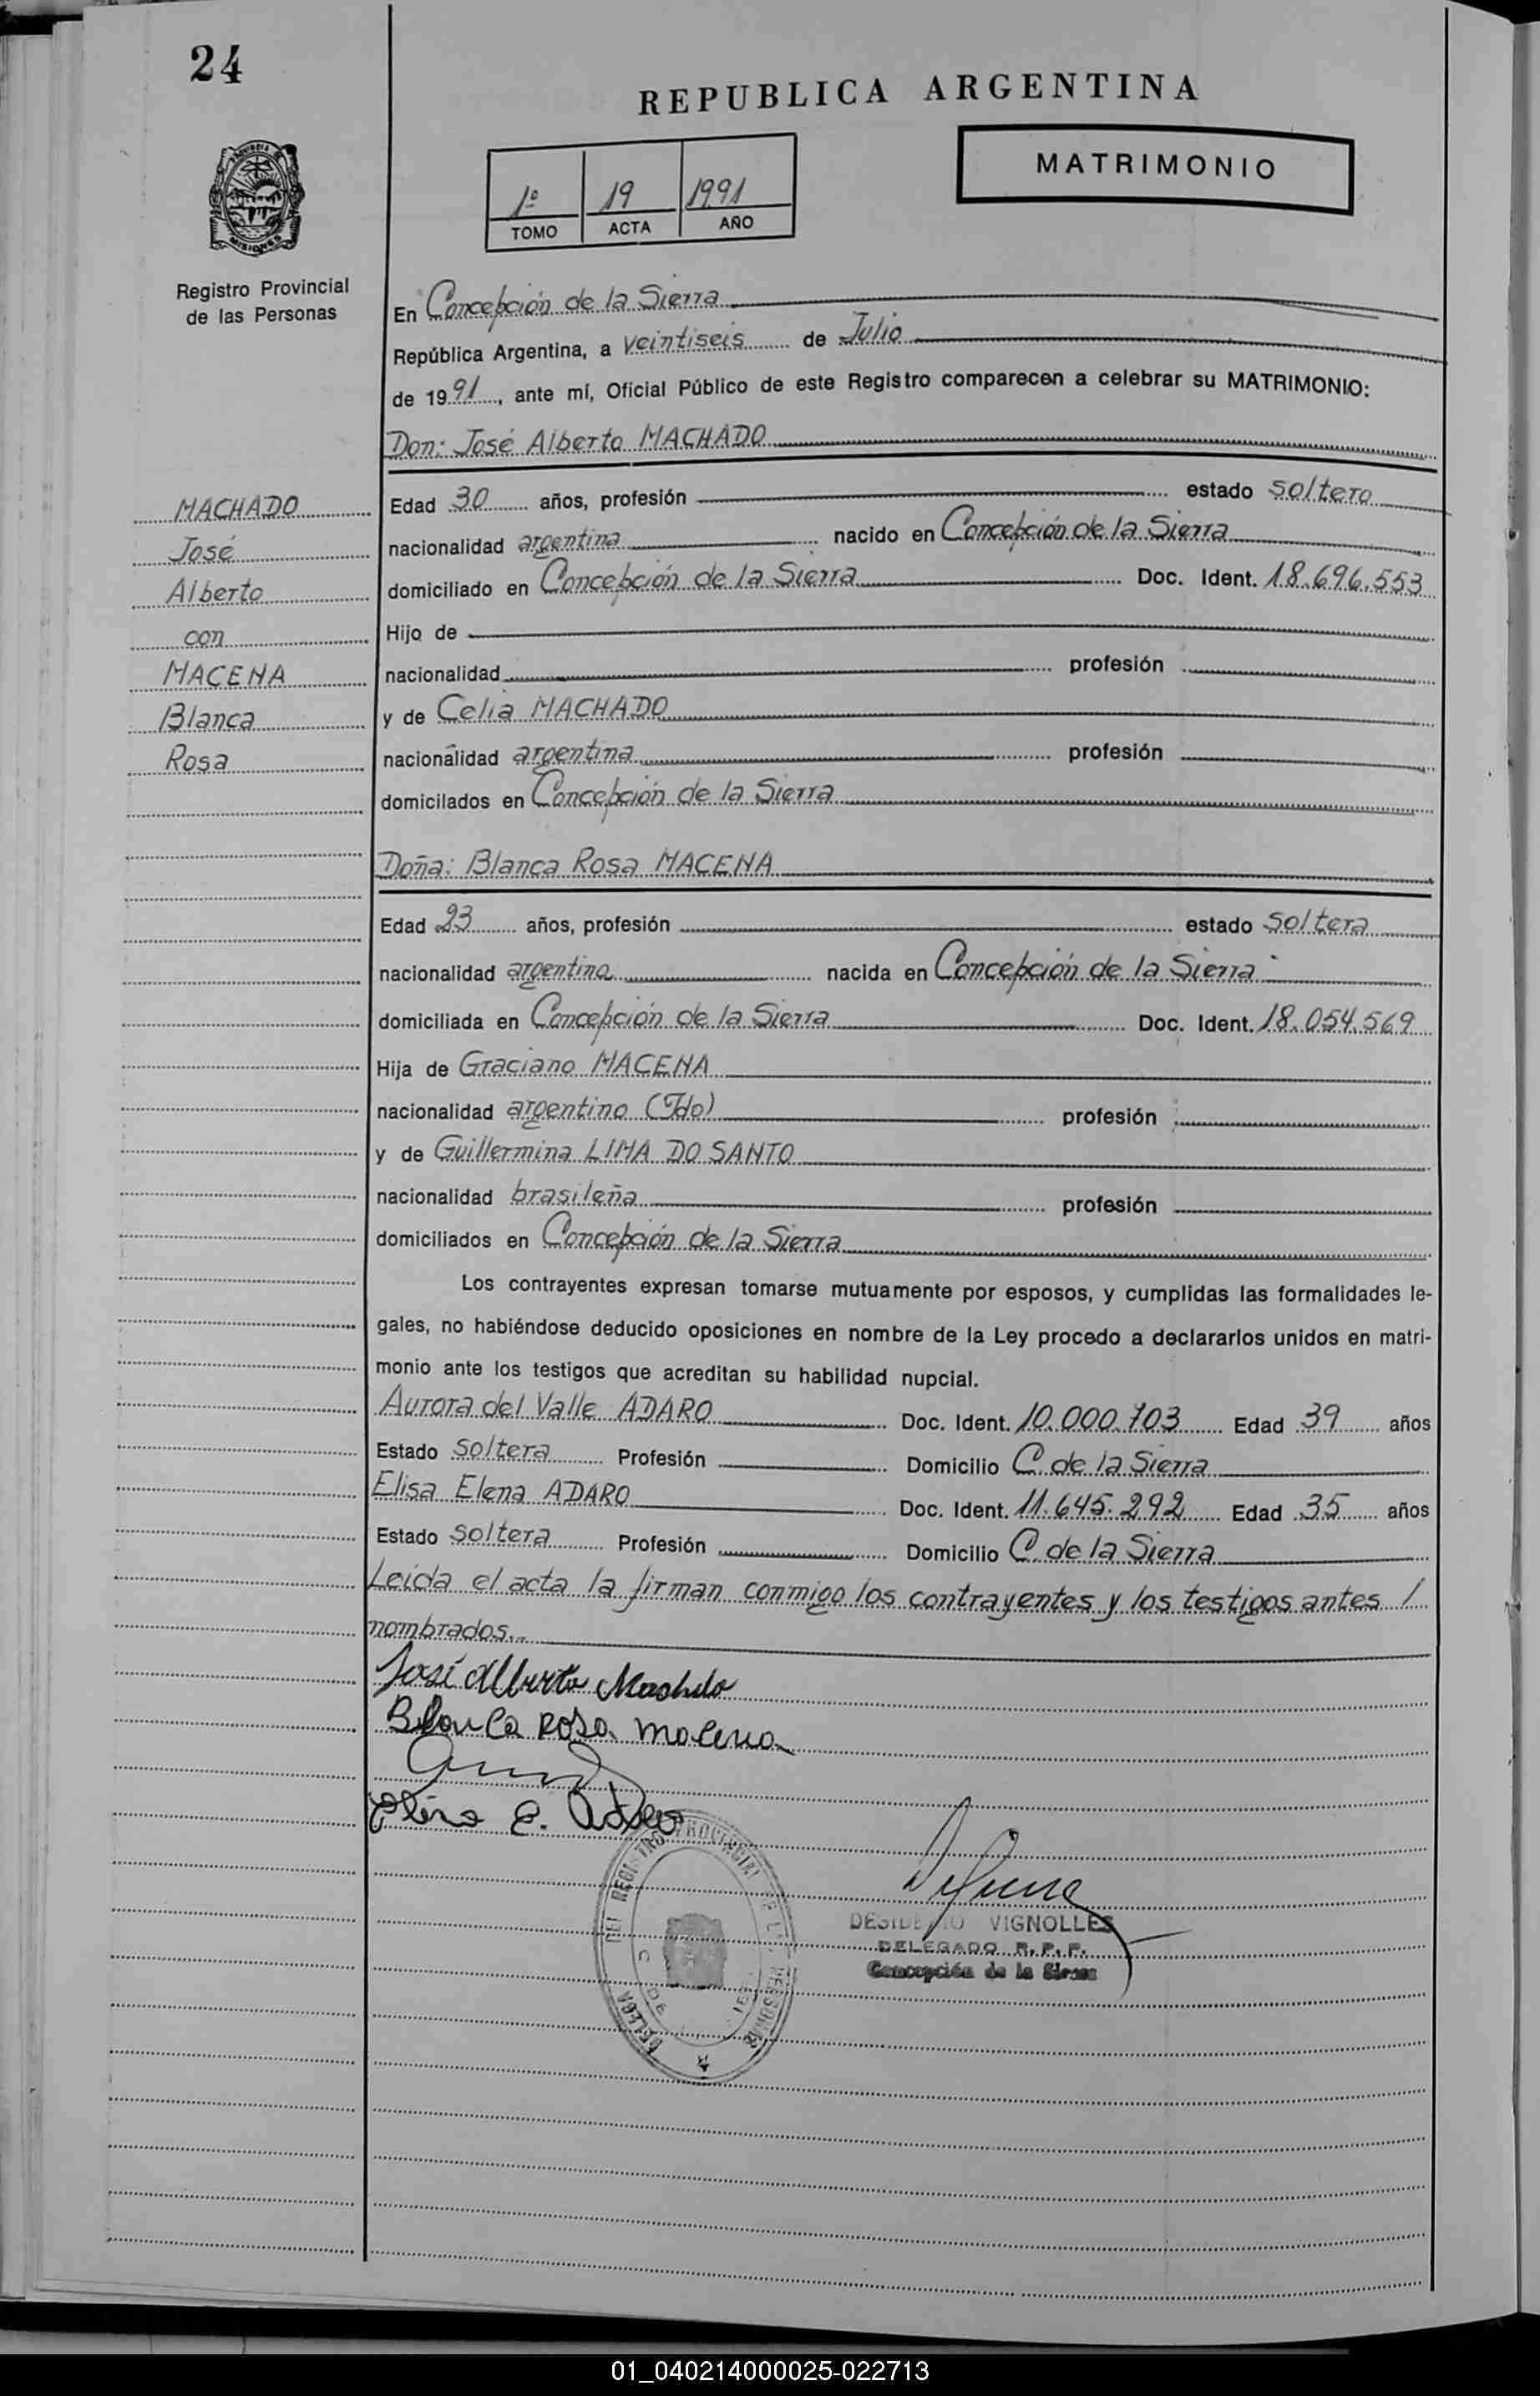 24
REPUBLICA ARGENTINA
MATRIMONIO
1º 19 1991
TOMO ACTA AÑO
MISIONES
Registro Provincial
de las Personas
En Concepción de la Sierra
República Argentina, a veintiseis de Julio
de 1991, ante mí, Oficial Público de este Registro comparecen a celebrar su MATRIMONIO:
Don: José Alberto MACHADO
MACHADO
José
Alberto
con
MACENA
Blanca
Rosa
Edad 30 años, profesión estado soltero
nacionalidad argentina nacido en Concepción de la Sierra
domiciliado en Concepción de la Sierra Doc. Ident. 18.696.553
Hijo de
nacionalidad profesión
y de Celia MACHADO
nacionalidad argentina profesión
domicilados en Concepción de la Sierra
Doña: Blanca Rosa MACENA
Edad 23 años, profesión estado soltera
nacionalidad argentina nacida en Concepción de la Sierra
domiciliada en Concepción de la Sierra Doc. Ident. 18.054.569
Hija de Graciano MACENA
nacionalidad argentino (Fdo) profesión
y de Guillermina LIMA DO SANTO
nacionalidad brasileña profesión
domiciliados en Concepción de la Sierra
Los contrayentes expresan tomarse mutuamente por esposos, y cumplidas las formalidades le-
gales, no habiéndose deducido oposiciones en nombre de la Ley procedo a declararlos unidos en matri-
monio ante los testigos que acreditan su habilidad nupcial.
Aurora del Valle ADARO Doc. Ident. 10.000.703 Edad 39 años
Estado soltera Profesión Domicilio C. de la Sierra
Elisa Elena ADARO Doc. Ident. 11.645.292 Edad 35 años
Estado soltera Profesión Domicilio C. de la Sierra
Leída el acta la firman conmigo los contrayentes y los testigos antes /
nombrados.
José Alberto Machado
Blanca Rosa Macena
Elisa E. Adaro
DESIDERIO VIGNOLLES
DELEGADO R. P. P.
Concepción de la Sierra
01_040214000025-022713